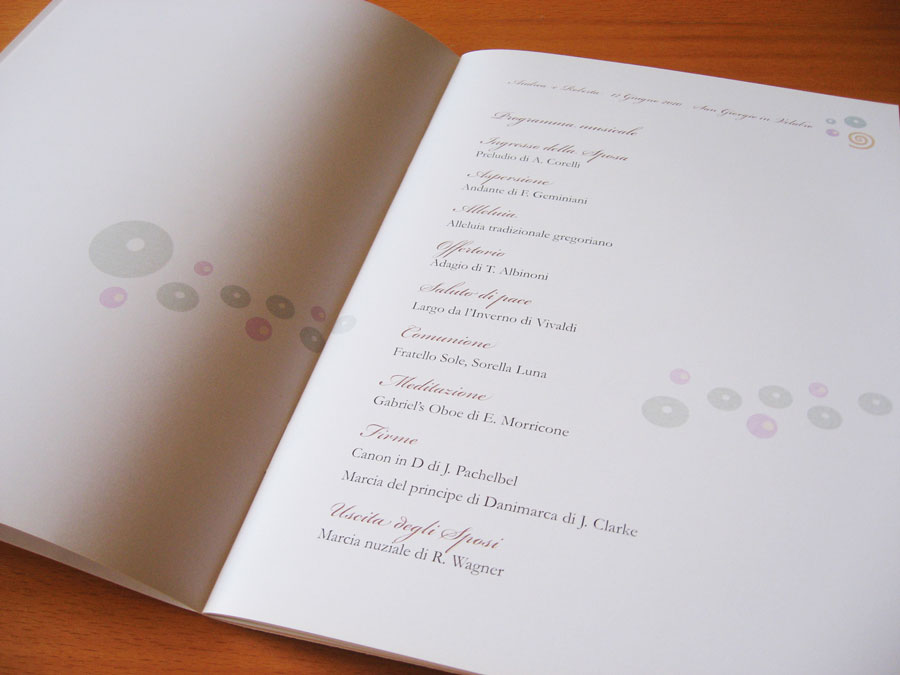 Andrea e Roberta - 12 Giugno 2010 - San Giorgio in Velabro
Programma musicale
Ingresso della Sposa
Preludio di A. Corelli
Aspersione
Andante di F. Geminiani
Alleluia
Alleluia tradizionale gregoriano
Offertorio
Adagio di T. Albinoni
Saluto di pace
Largo da l'Inverno di Vivaldi
Comunione
Fratello Sole, Sorella Luna
Meditazione
Gabriel's Oboe di E. Morricone
Firme
Canon in D di J. Pachelbel
Marcia del principe di Danimarca di J. Clarke
Uscita degli Sposi
Marcia nuziale di R. Wagner